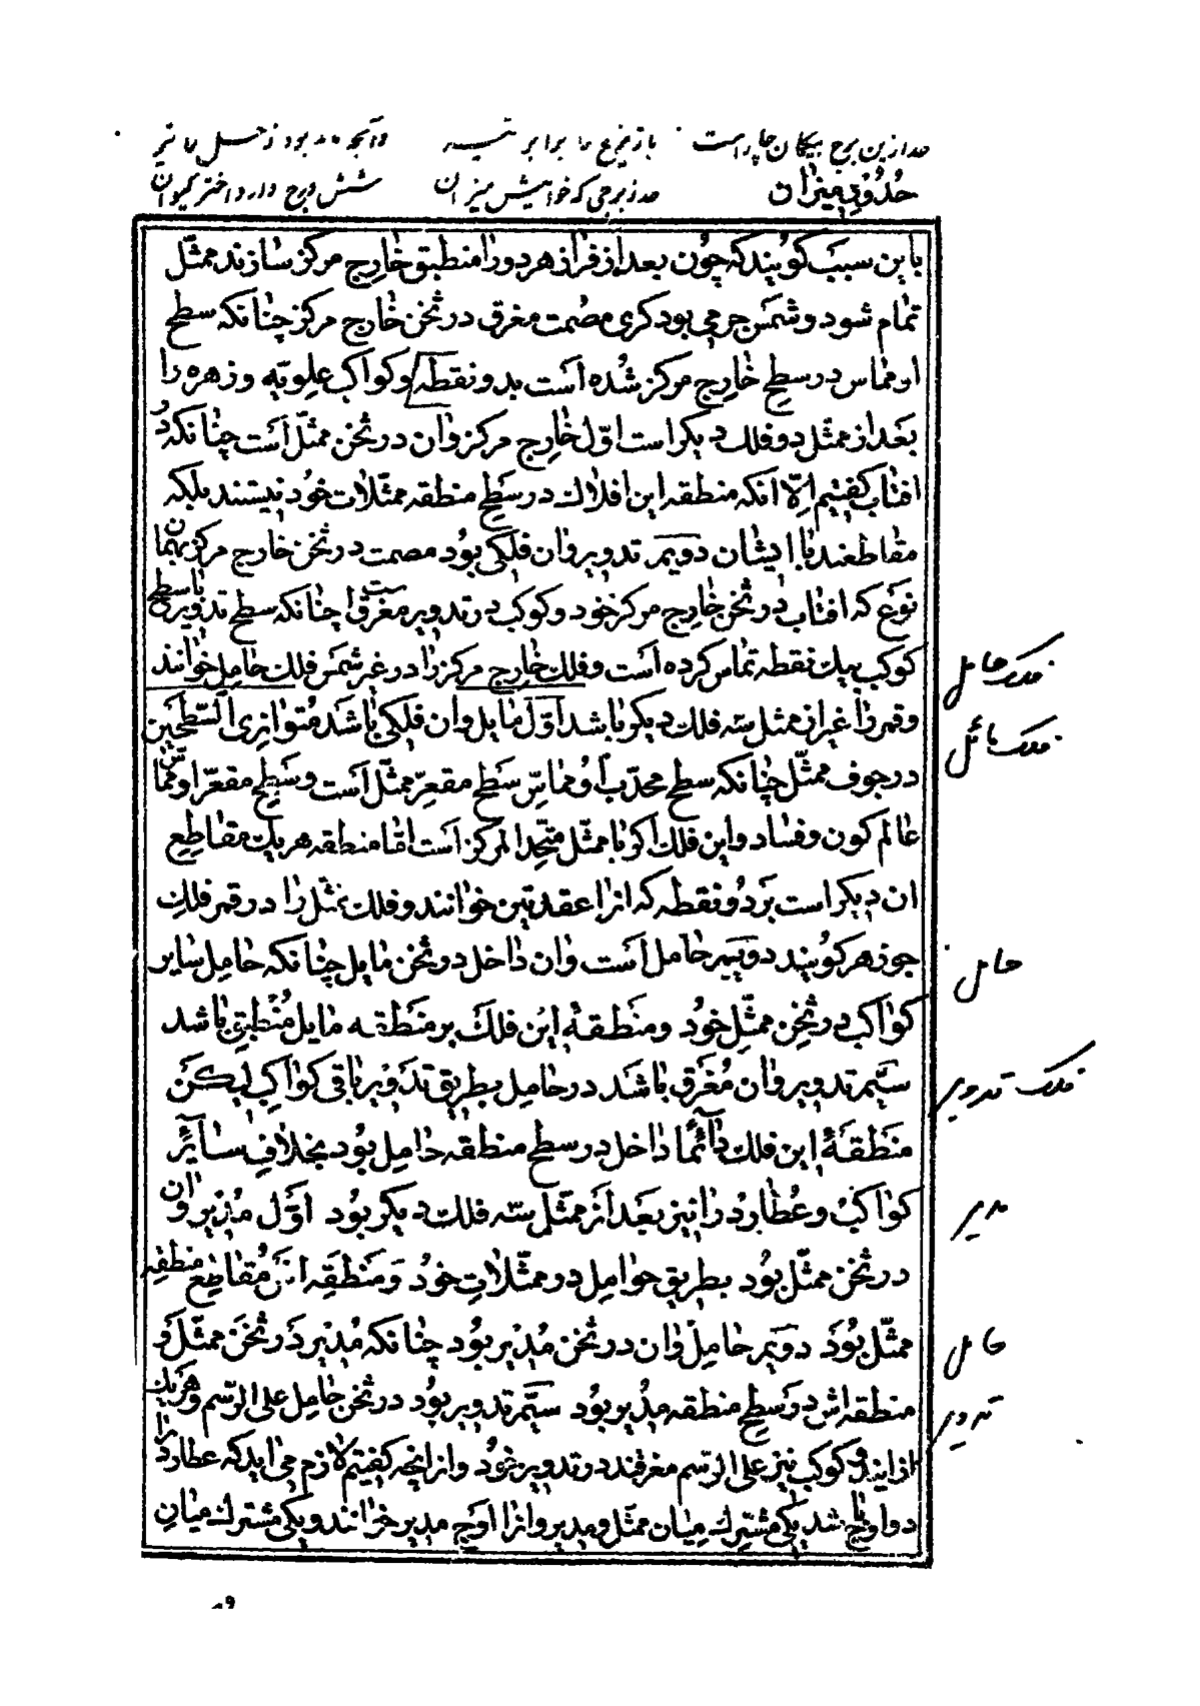 باین سبب کویند که چون بعد از فراز هر دو را منطبق خارج مرکز سازند ممثّل
تمام شود و شمس جرمی بود کری مصمت مغرق در ثخن خارج مرکز چنانکه سطح
او مماس در سطح خارج مرکز شده است بدو نقطه وکواکب علویّه وزهره را
بعد از ممثل دو فلك دیکر است اوّل خارج مرکز وان در ثخن ممثّل است چنانکه در
افتاب کفتیم الّا انکه منطقه این افلاك در سطح منطقه ممثّلات خود نیستند بلکه
مقاطعند با ایشان دویم تدویر وان فلکی بود مصمت در ثخن خارج مرکز بهمان
نوع که افتاب در ثخن خارج مرکز خود وکوکب در تدویر مغرق است چنانکه سطح تدویر با سطح
کوکب بیك نقطه تماس کرده است وفلك خارج مرکز را در غیر شمس فلك حامل خوانند
وقمر را غیر از ممثل سه فلك دیکر باشد اوّل مایل وان فلکی باشد متوازی السّطحین
در جوف ممثّل چنانکه سطح محدّب او مماسّ سطح مقعرّ ممثّل است وسطح مقعّر او مماسّ
عالم کون وفساد واین فلك اکر با ممثّل متّحد المرکز است امّا منطقه هریك مقاطع
ان دیکر است بر دو نقطه که انرا عقدتین خوانند وفلك ممثّل را در قمر فلك
جوزهر کویند دویم حامل است وان داخل در ثخن مایل چنانکه حامل سایر
کواکب در ثخن ممثّل خود ومنطقهٔ این فلك بر منطقه مایل منطبق باشد
سیّم تدویر وان مغرق باشد در حامل بطریق تدویر باقی کواکب لیکن
منطقهٔ این فلك دائما داخل در سطح منطقه حامل بود بخلاف سائر
کواکب وعطارد را نیز بعد از ممثّل سه فلك دیکر بود اوّل مدیر وان
در ثخن ممثّل بود بطریق حوامل در ممثّلات خود ومنطقه این مقاطع منطقه
ممثّل بود دویم حامل وان در ثخن مدیر بود چنانکه مدیر در ثخن ممثّل و
منطقه‌اش در سطح منطقه مدیر بود سیّم تدویر بود در ثخن حامل علی الرّسم وهریك
از این دو کوکب نیز علی الرّسم مغرقند در تدویر خود واز انچه کفتیم لازم می‌اید که عطارد را
دو اوج باشد یکی مشترك میان ممثّل ومدیر وانرا اوج مدیر خوانند ویکی مشترك میان
فلك حامل
فلك مائل
حامل
فلك تدویر
مدیر
حامل
تدویر